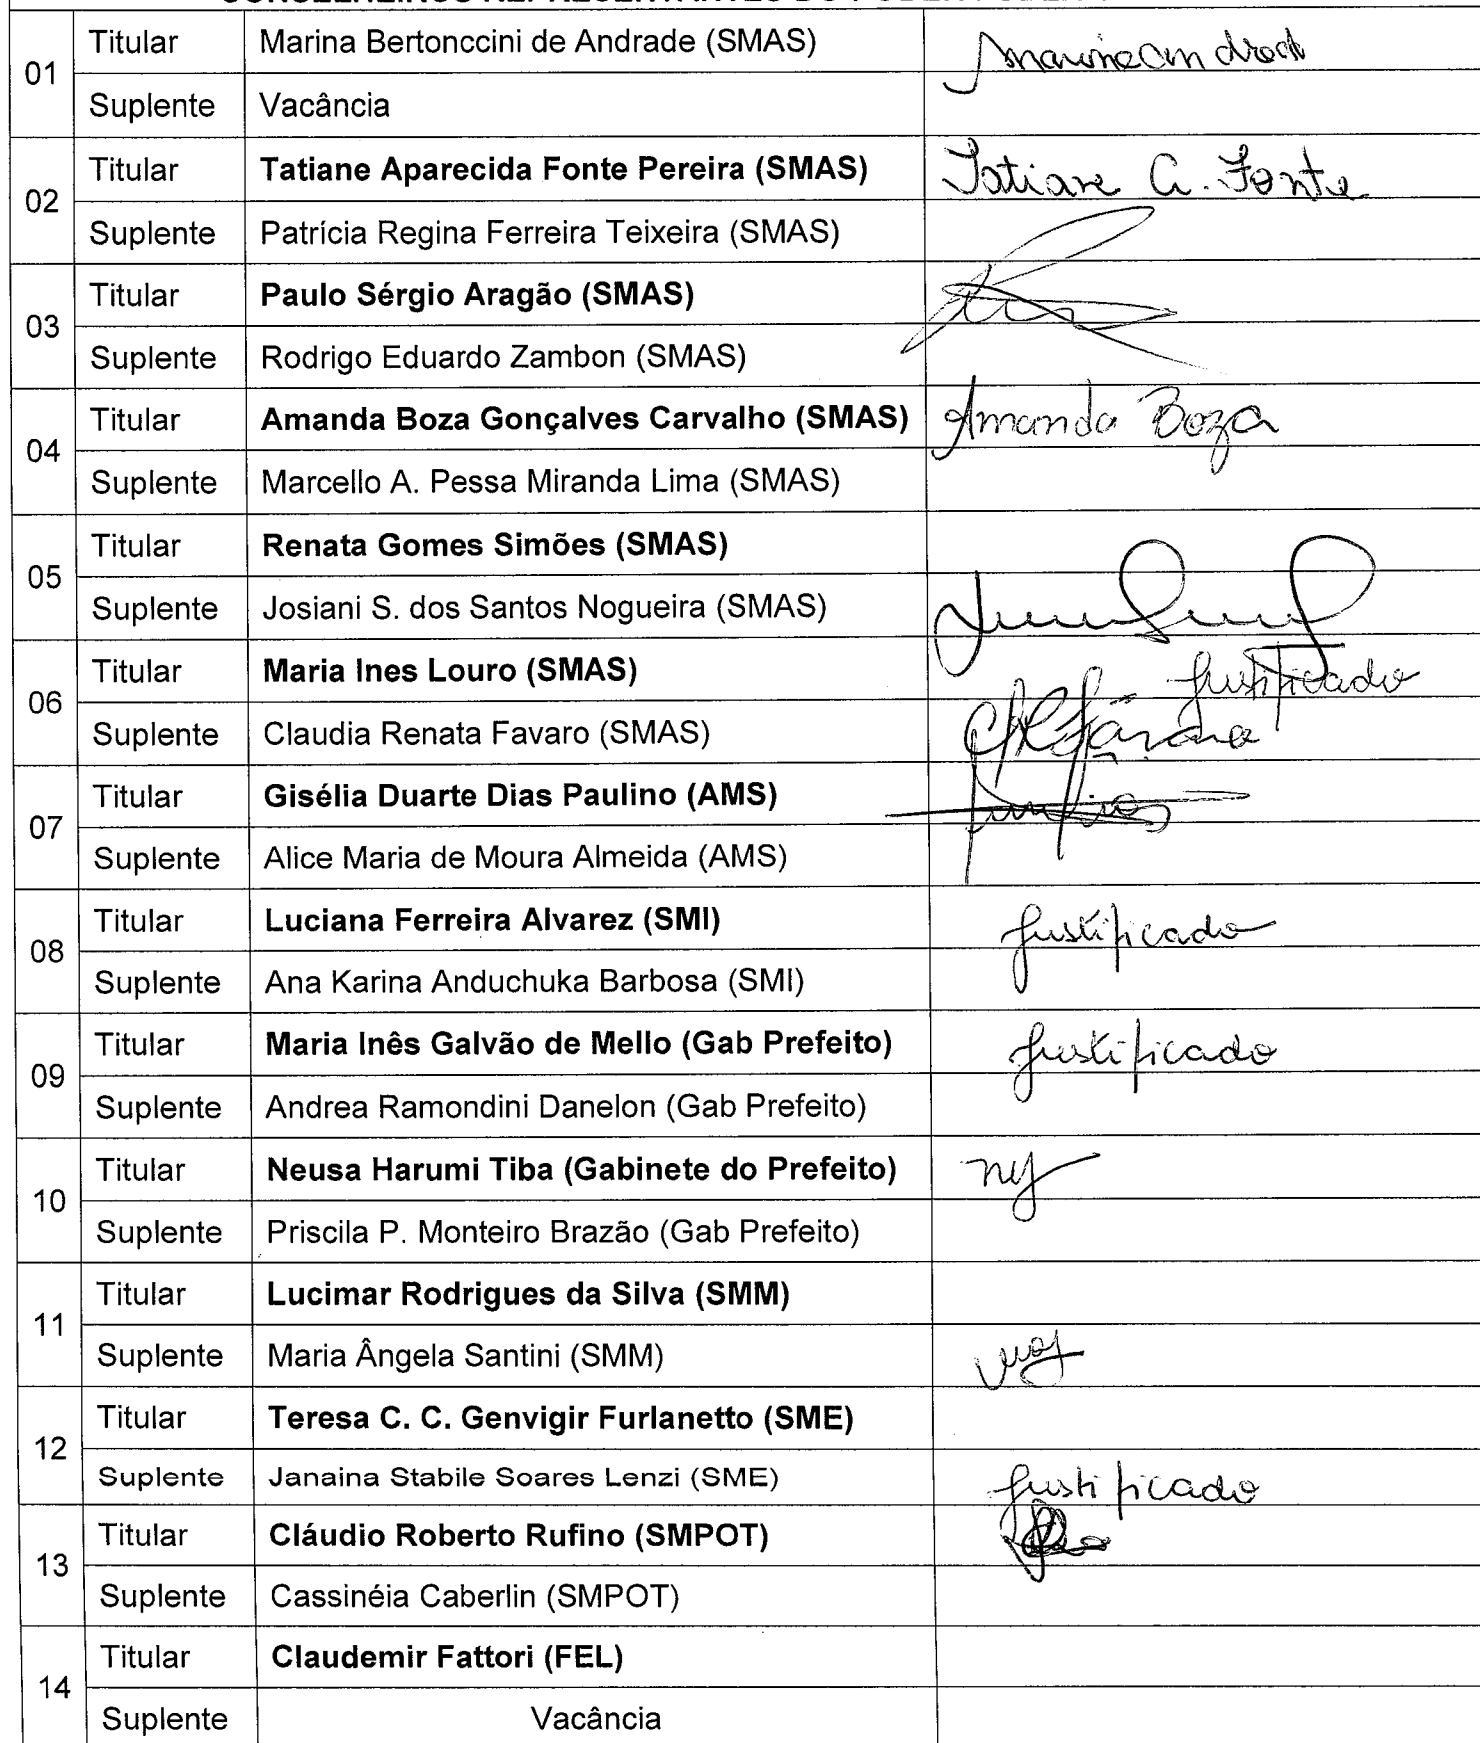 01 Titular Marina Bertonccini de Andrade (SMAS)
Suplente Vacância
02 Titular Tatiane Aparecida Fonte Pereira (SMAS) Tatiane A. Fonte
Suplente Patrícia Regina Ferreira Teixeira (SMAS)
03 Titular Paulo Sérgio Aragão (SMAS)
Suplente Rodrigo Eduardo Zambon (SMAS)
04 Titular Amanda Boza Gonçalves Carvalho (SMAS) Amanda Boza
Suplente Marcello A. Pessa Miranda Lima (SMAS)
05 Titular Renata Gomes Simões (SMAS)
Suplente Josiani S. dos Santos Nogueira (SMAS)
06 Titular Maria Ines Louro (SMAS) Justificado
Suplente Claudia Renata Favaro (SMAS)
07 Titular Gisélia Duarte Dias Paulino (AMS)
Suplente Alice Maria de Moura Almeida (AMS)
08 Titular Luciana Ferreira Alvarez (SMI) Justificado
Suplente Ana Karina Anduchuka Barbosa (SMI)
09 Titular Maria Inês Galvão de Mello (Gab Prefeito) Justificado
Suplente Andrea Ramondini Danelon (Gab Prefeito)
10 Titular Neusa Harumi Tiba (Gabinete do Prefeito)
Suplente Priscila P. Monteiro Brazão (Gab Prefeito)
11 Titular Lucimar Rodrigues da Silva (SMM)
Suplente Maria Ângela Santini (SMM)
12 Titular Teresa C. C. Genvigir Furlanetto (SME)
Suplente Janaina Stabile Soares Lenzi (SME) Justificado
13 Titular Cláudio Roberto Rufino (SMPOT)
Suplente Cassinéia Caberlin (SMPOT)
14 Titular Claudemir Fattori (FEL)
Suplente Vacância